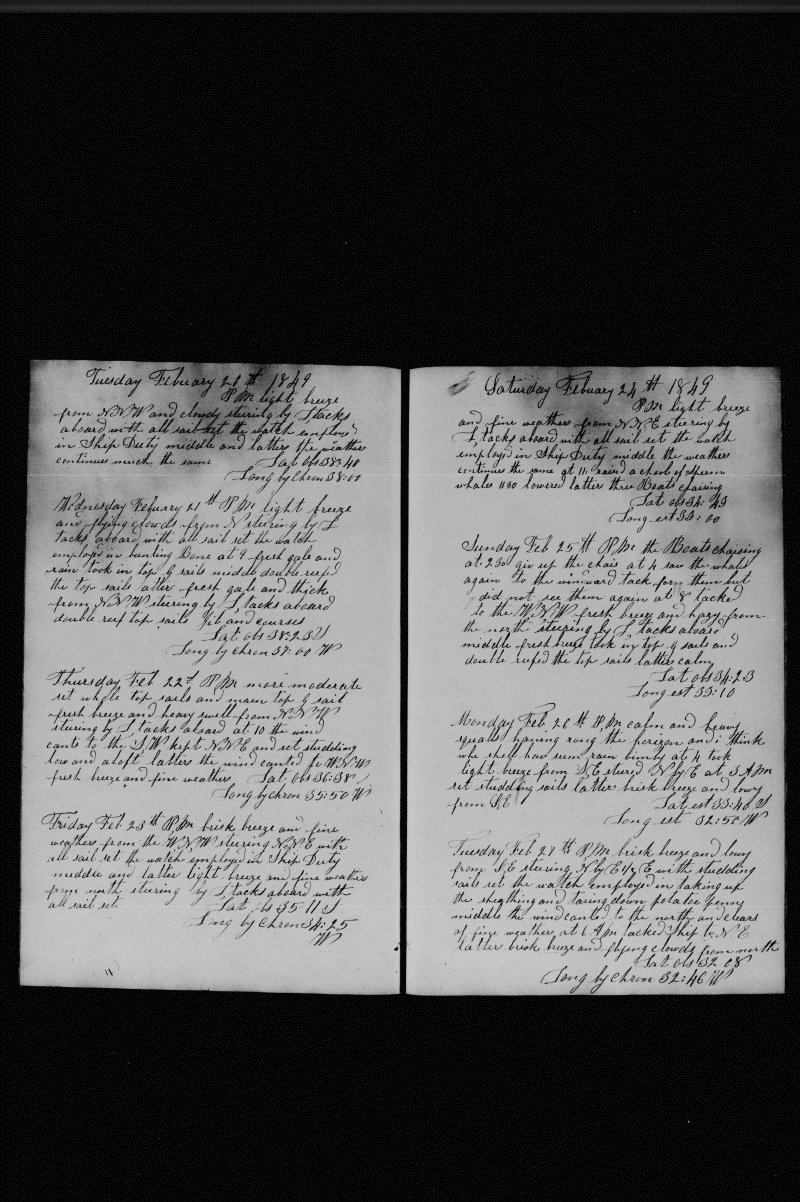 Tuesday Febuary 20th 1849
P M light breze
from N N W and clowdy steering by S, tacks
aboard with all sail set the watch employed
in Ship Duty middle and latters the weathers
continues much the same Lat Obs 38:40
Long by Chron 38:00
Wednesday Febuary 21th P M light breeze
and flying clowds from N stering by S,
tacks aboard with all sail set the watch
employd in bunting Bone at 9 fresh gale and
rain took in top g sails middle double reefd
the top sails latter fresh gale and thick
from N N W steering by S, tacks aboard
double reef top sails Jib and courses
Lat obs 38:23 S
Long by chron 37:00 W
Thursday Feb 22d P M more moderate
set whole top sails and main top g sail
fresh breeze and heavy swell from N N W
stering by S, tacks aboard at 10 the wind
cants to the S, W kept N N E and set studding
low and aloft latters the wind canted to W N W
fresh breeze and fine weathers Lat Obs 36:38
Long by chron 35:50 W
Friday Feb 23th P M brisk breeze and fine
weathers from the W N W steering N N E with
all sail set the watch employd in Ship Duty
middle and latter light breeze and fine weather
from north steering by S, tacks aboard with
all sail set Lat Obs 35-11 S
Long by Chron 34:25
W
Saturday Febuary 24th 1849
P M light breeze
and fine weathers from N N E steering by
S, tacks aboard with all sail set the watch
employd in Ship Duty middle the weathers
continues the same at 11: raised a of Sperm
whales 1130 lowered latter three Boats chaising
Lat obs 34:43
Long est 33:00
Sunday Feb 25th P M the Boats chaising
at 230 giv up the chais at 4 saw the whale
again to the winward tack for them but
did not see them again at 8 tacked
to the W.N.W fresh breeze and hazy from
the north steering by S, tacks aboard
middle fresh breeze took in top g sails and
double reefed the top sails latters calm
Lat obs 34:23
Long est 33:10
Monday Feb 26th P M calm and heavy
squals haning rong the horizon and i think
whe shell hav sum rain bimby at 4 took
light breeze from S,E stered N by E at 3 A M
set studding sails latter brisk breeze and lowy
from S,E Lat est 33:40 S
Long est 32:50 W
Tuesday Feb 27th P M brisk breeze and lowy
from S,E stering N by E 1/2 E with studding
sails set the watch employed in taking up
the sheything and taring down potatoe penny
middle the wind canted to the north and clears
of fine weather at 6 A M tacked Ship to N E
latter brisk breeze and flying clowds from north
Lat Obs 32 08
Long by Chron 32:46 W